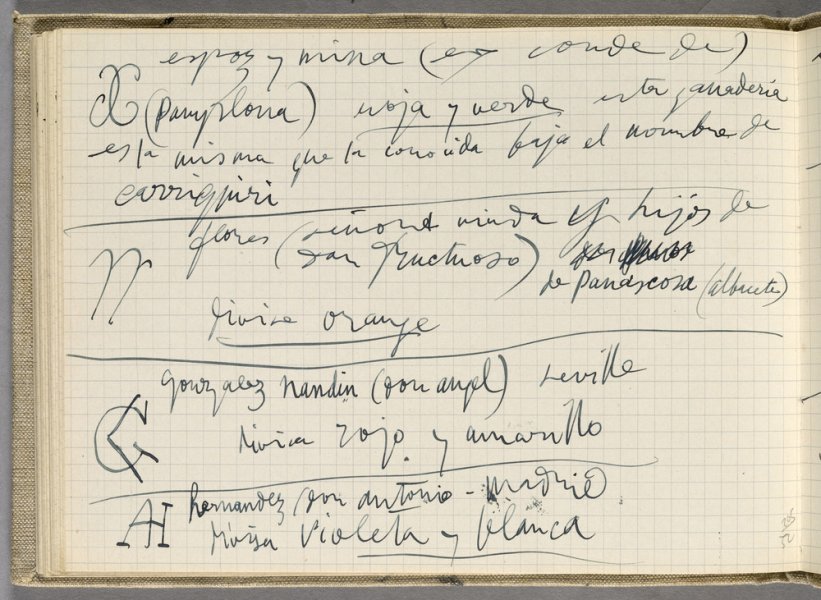 espoz y mina (ex conde de)
(Pamplona) roja y verde esta ganaderia
esta misma que la conocida bajo el nombre de
carriquiri
flores (señora viuda y hijos de
don fructuoso)
de Panascosa (albacete)
divisa orange
gonzalez nandin (don angel) seville
divisa rojo y amarillo
AH hernandez (don antonio - madrid)
divisa violeta y blanca